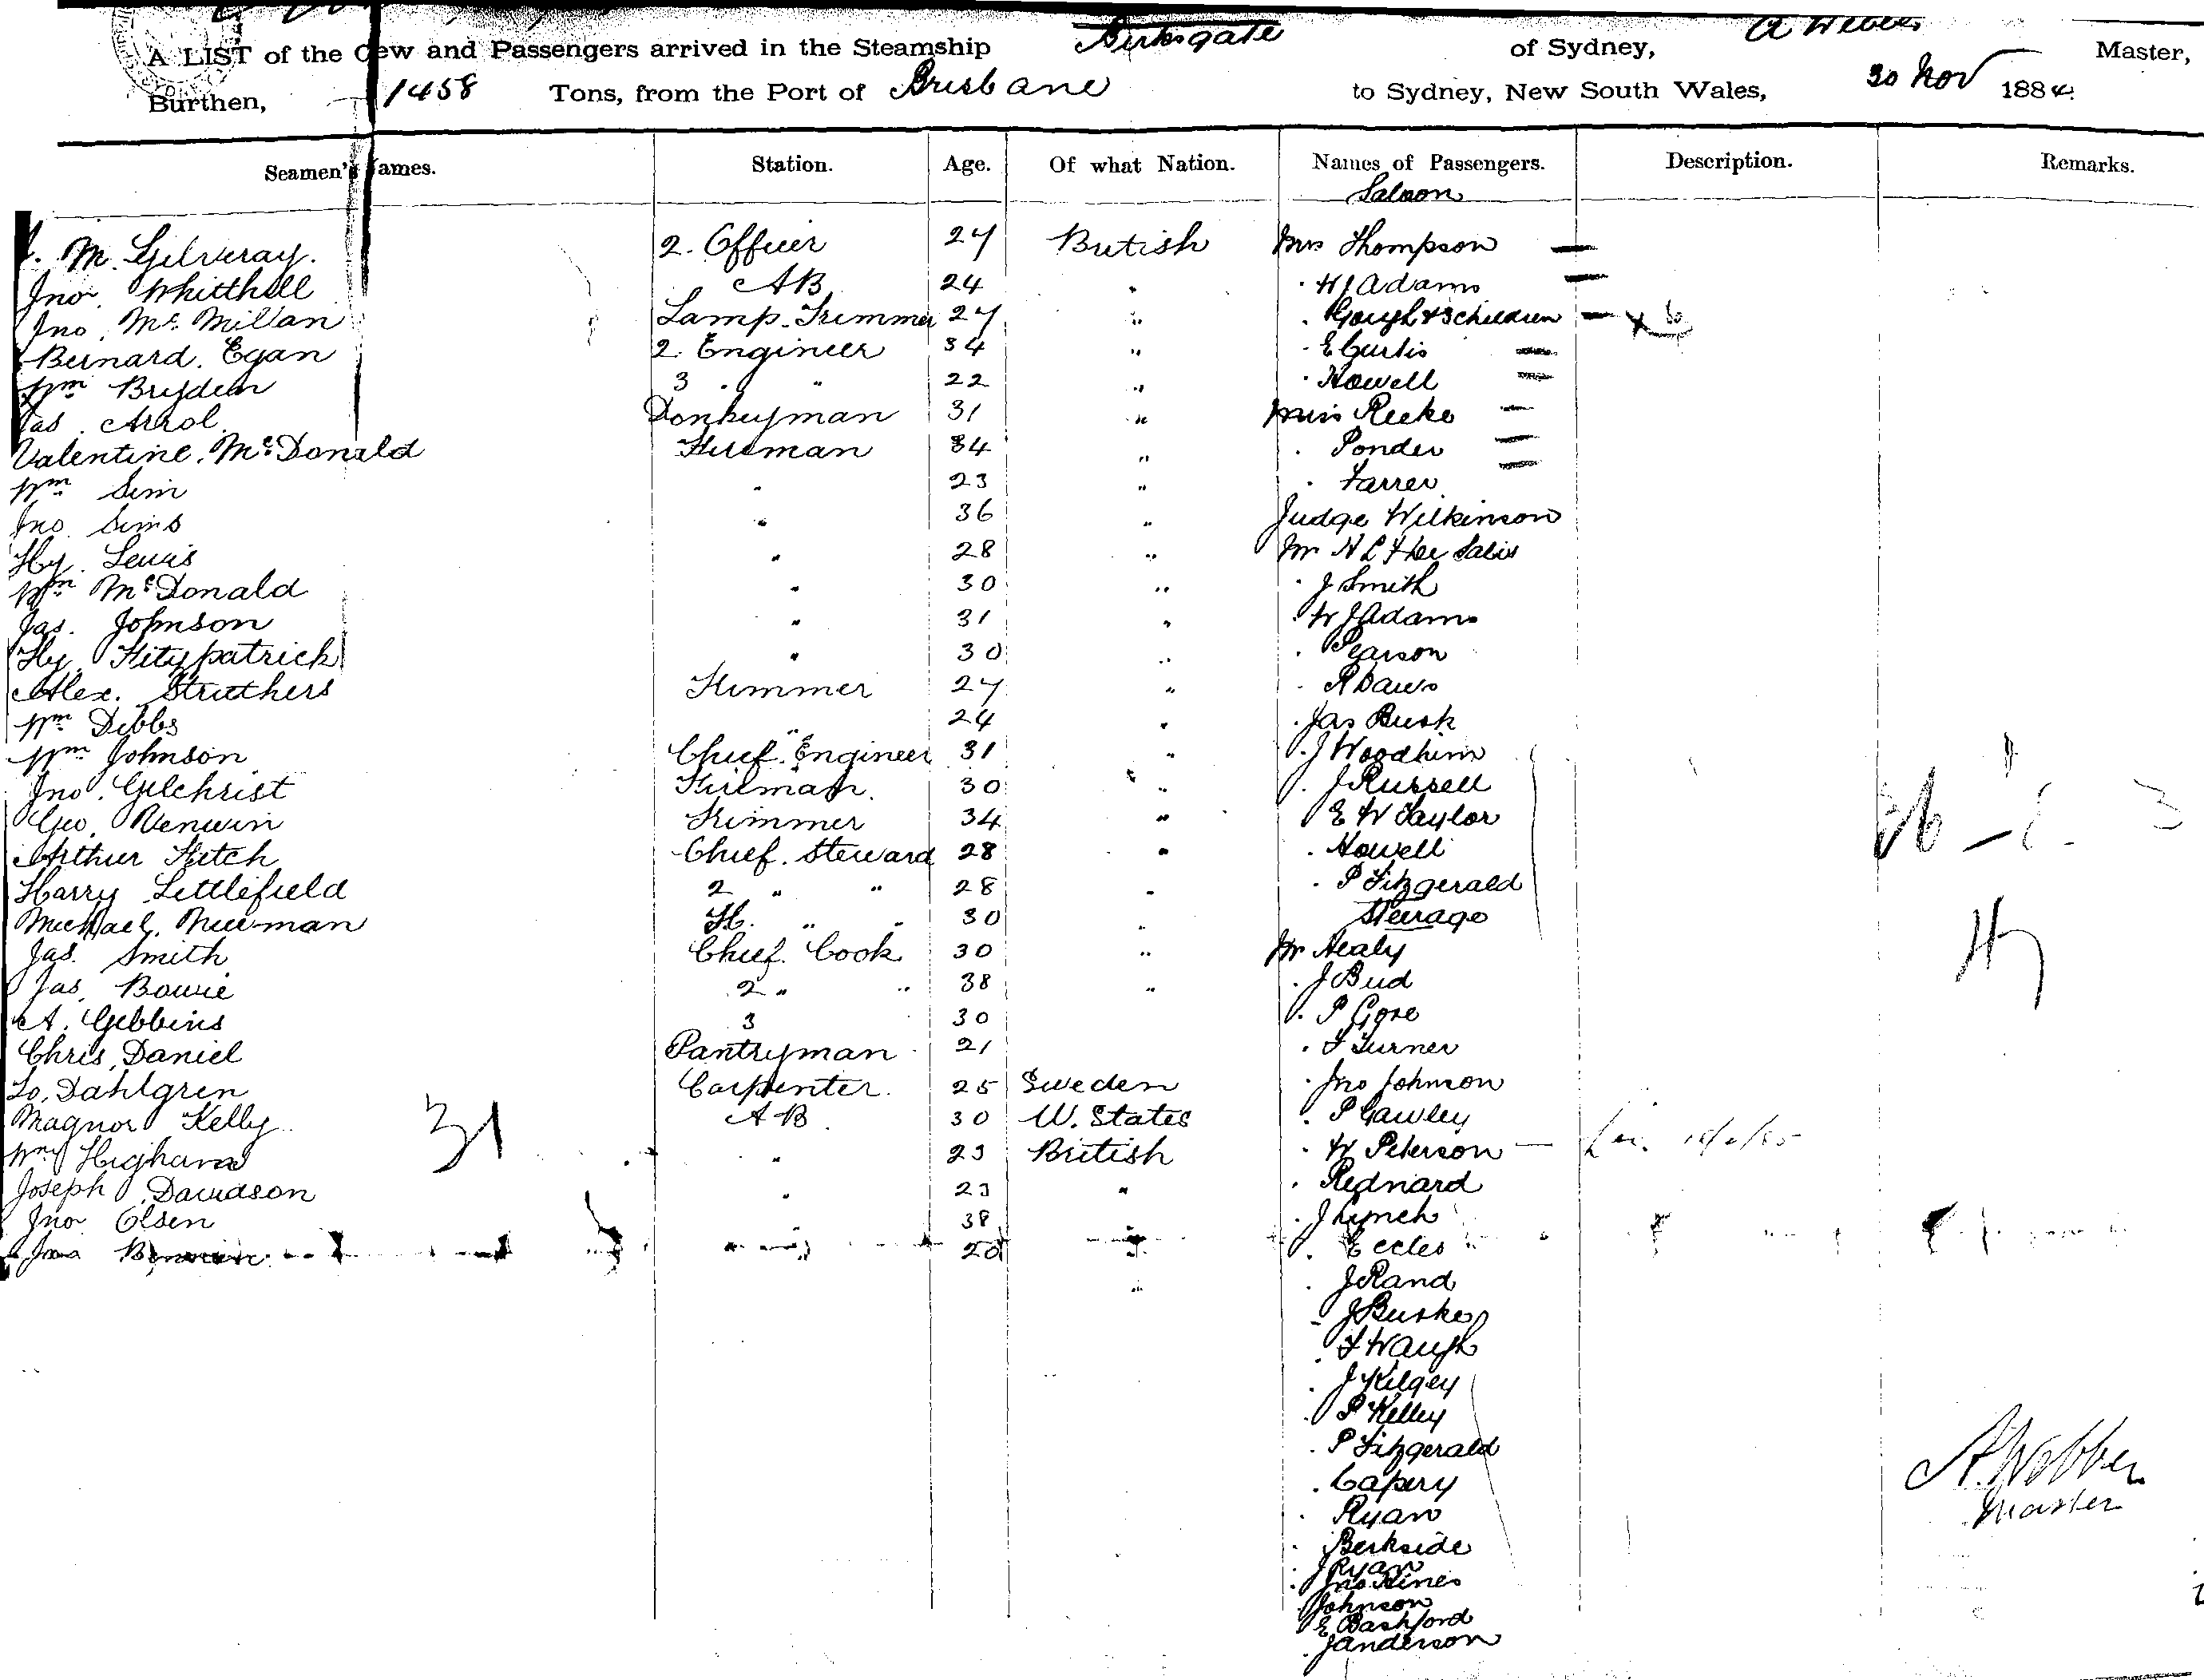 A LIST of the Crew and Passengers arrived in the Steamship Birksgate of Sydney, A Webber Master,
Burthen, 1458 Tons, from the Port of Brisbane to Sydney, New South Wales, 30 Nov 1884
Seamen's Names. Station. Age. Of what Nation. Names of Passengers. Description. Remarks.
Saloon
M. Gilvray. 2. Officer 27 British Mrs Thompson —
Jno Whitthill AB 24 " . H J Adams —
Jno. Mc. Millan Lamp-Trimmer 27 " . Gough & 3 children — x
Bernard. Egan 2. Engineer 34 " . E Curtis —
Wm Bryden 3 " " 22 " . Howell —
Jas. Arrol Donkeyman 31 " Miss Reeke —
Valentine. McDonald Fireman 34 " . Ponder —
Wm Sim " 23 " . Farrer —
Jno. Sims " 36 " Judge Wilkinson
Hy. Lewis " 28 " Mr
Wm McDonald " 30 " . J Smith
Jas. Johnson " 31 " . W J Adams
Hy. Fitzpatrick " 30 " . Pearson
Alex. Struthers Trimmer 27 " . R Daws
Wm Dibbs " 24 " . Jas Busk
Wm Johnson Chief. Engineer 31 " . J Woodhim
Jno. Gilchrist Fireman. 30 " . J Russell
Geo. Trimmer 34 " E W Taylor
Arthur Fitch Chief. Steward 28 " . Howell
Harry Littlefield 2 " " 28 " . P Fitzgerald
Michael. Newman " " 30 " Steerage
Jas. Smith Chief. Cook 30 " Mr Healy
Jas. Bowie 2 " " 38 " . J Bud
A. Gibbins 3 30 . P Gore
Chris. Daniel Pantryman 21 . F Turner
Lo. Dahlgren Carpenter. 25 Sweden . Jno Johnson
Magnor Kelly 31 AB 30 U. States . P Gawley
Wm Higham " 23 British . W Peterson —
Joseph Davidson " 23 " . Rednard
Jno Olsen " 38 . J Lynch
20 . Eccles
" . J Rand
- J Burke
. F Waugh
. J Kilgey
. P Kelley
. P Fitzgerald
. Capery
. Ryan
. Berkside
. J Ryan
. Jno Hines
. Johnson
. E Bashford
. J Anderson
A. Webber
Master